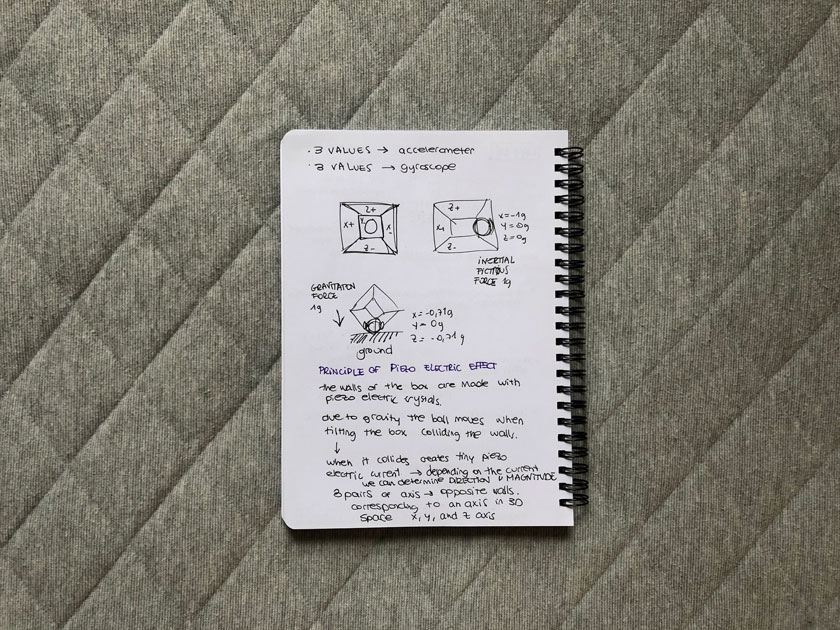 · 3 VALUES → accelerometer
· 3 VALUES → gyroscope
Z+
X+ Y X-
Z-
Z+
X+
Z-
X=-1g
Y=0g
Z=0g
INERTIAL
FICTIOUS
FORCE 1g
GRAVITATION
FORCE
1g
X=-0,71g
Y=0g
Z=-0,71g
ground
PRINCIPLE OF PIEZO ELECTRIC EFFECT
the walls of the box are made with
piezo electric crystals.
due to gravity the ball moves when
tilting the box colliding the walls.
↓
when it collides creates tiny piezo
electric current → depending on the current
we can determine DIRECTION & MAGNITUDE
3 pairs of axis → opposite walls.
corresponding to an axis in 3D
space X, Y, and Z axis